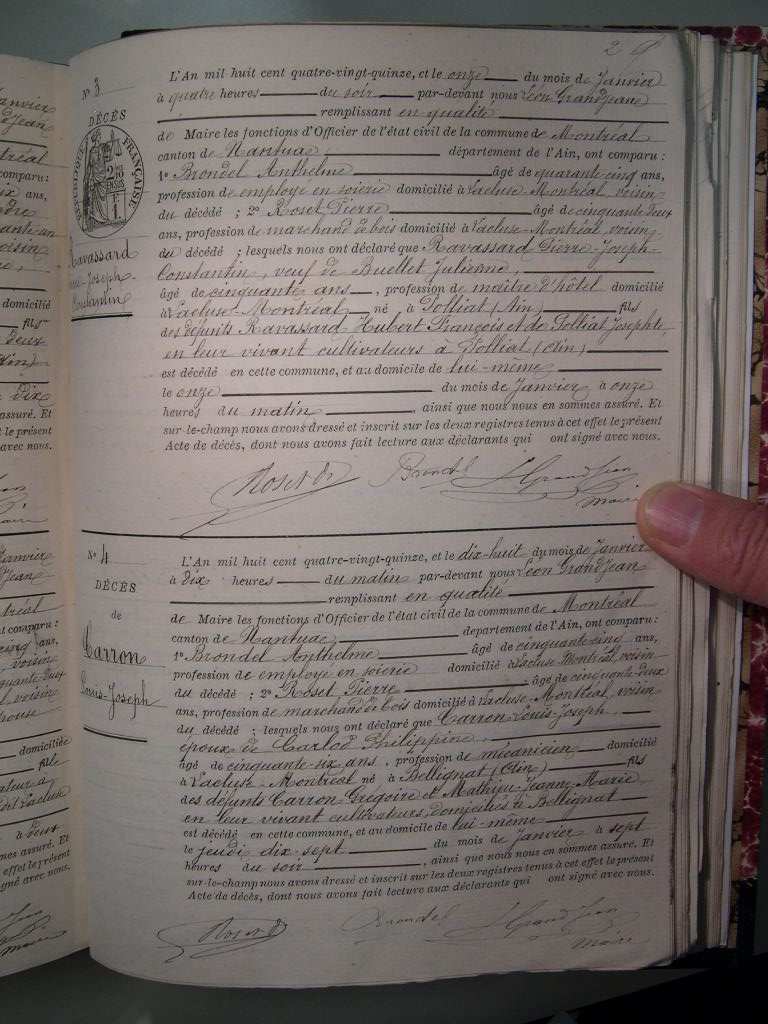 2
N° 3
DÉCÈS
RÉPUBLIQUE FRANÇAISE
Ravassard
Joseph
Constantin
L'An mil huit cent quatre-vingt-quinze, et le onze du mois de Janvier
à quatre heures du soir par-devant nous Léon Grandjean
remplissant en qualité
de Maire les fonctions d'Officier de l'état civil de la commune de Montréal
canton de Nantua, département de l'Ain, ont comparu :
1° Brondel Anthelme âgé de quarante cinq ans,
profession de employé en soierie domicilié à Lacluse-Montréal, voisin
du décédé ; 2° Roset Pierre âgé de cinquante deux
ans, profession de marchand de bois domicilié à Lacluse-Montréal, voisin
du décédé ; lesquels nous ont déclaré que Ravassard Pierre-Joseph-
Constantin, veuf de Buellet Julienne,
âgé de cinquante ans, profession de maître d'hôtel domicilié
à Lacluse-Montréal né à Solliat (Ain) fils
des défunts Ravassard Hubert François et de Solliat Josephte,
en leur vivant cultivateurs à Solliat (Ain)
est décédé en cette commune, et au domicile de lui-même
le onze du mois de Janvier à onze
heures du matin, ainsi que nous nous en sommes assuré. Et
sur-le-champ nous avons dressé et inscrit sur les deux registres tenus à cet effet le présent
Acte de décès, dont nous avons fait lecture aux déclarants qui ont signé avec nous.
Roset Brondel L. Grandjean
maire
N° 4
DÉCÈS
de
Carron
Louis-Joseph
L'An mil huit cent quatre-vingt-quinze, et le dix-huit du mois de Janvier
à dix heures du matin par-devant nous Léon Grandjean
remplissant en qualité
de Maire les fonctions d'Officier de l'état civil de la commune de Montréal
canton de Nantua département de l'Ain, ont comparu :
1° Brondel Anthelme âgé de cinquante cinq ans,
profession de employé en soierie domicilié à Lacluse Montréal, voisin
du décédé ; 2° Roset Pierre âgé de cinquante-deux
ans, profession de marchand de bois domicilié à Lacluse-Montréal, voisin
du décédé ; lesquels nous ont déclaré que Carron Louis-Joseph,
époux de Carlod Philippine,
âgé de cinquante-six ans, profession de mécanicien domicilié
à Lacluse-Montréal né à Bellignat (Ain) fils
des défunts Carron Grégoire et Jeanne-Marie
en leur vivant cultivateurs, domiciliés à Bellignat
est décédé en cette commune, et au domicile de lui-même
le jeudi dix-sept du mois de Janvier à sept
heures du soir, ainsi que nous nous en sommes assuré. Et
sur-le-champ nous avons dressé et inscrit sur les deux registres tenus à cet effet le présent
Acte de décès, dont nous avons fait lecture aux déclarants qui ont signé avec nous.
Roset Brondel L. Grandjean
maire